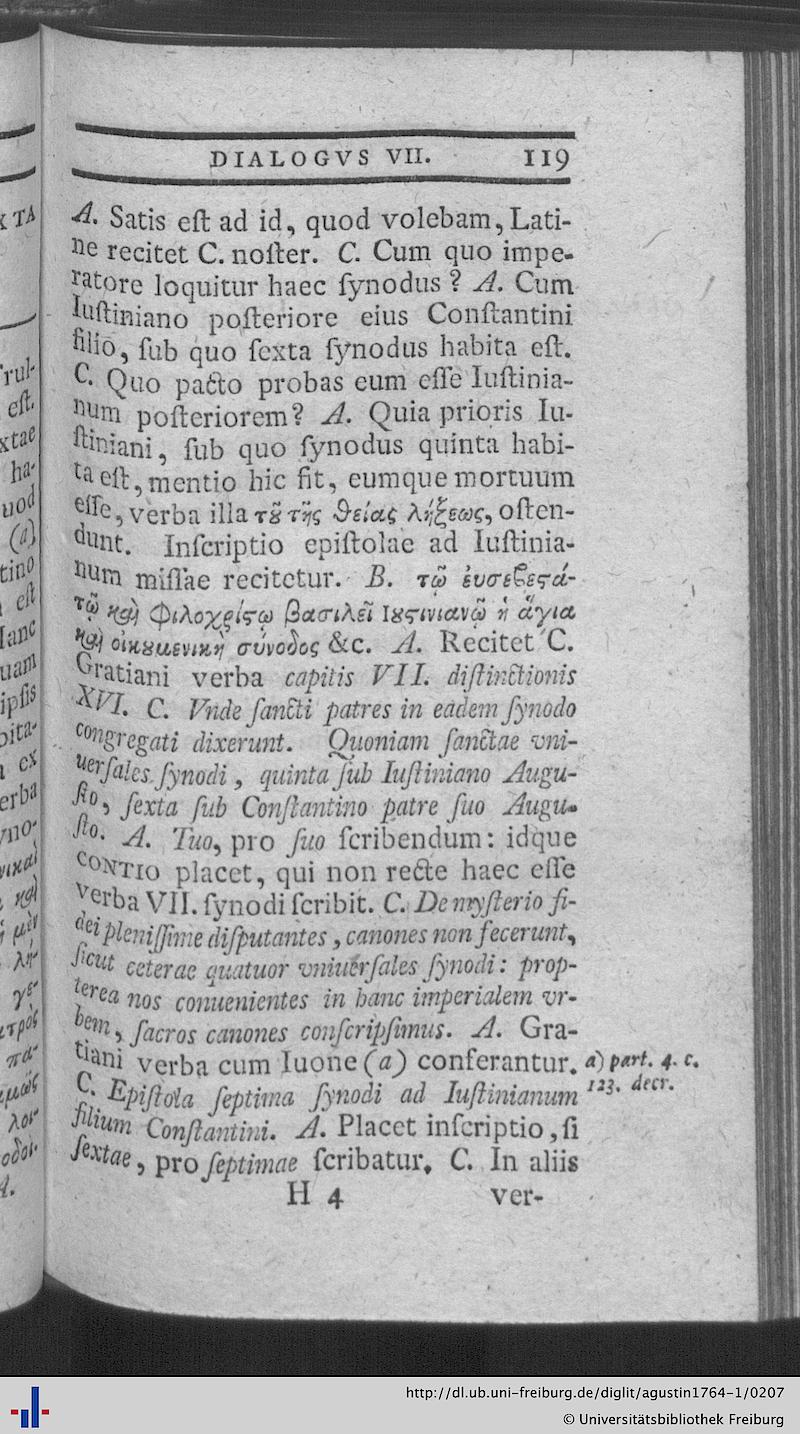 DIALOGVS VII. 119
A. Satis eſt ad id, quod volebam, Lati-
ne recitet C. noſter. C. Cum quo impe-
ratore loquitur haec ſynodus? A. Cum
Iuſtiniano poſteriore eius Conſtantini
filio, ſub quo ſexta ſynodus habita eſt.
C. Quo pacto probas eum eſſe Iuſtinia-
num poſteriorem? A. Quia prioris Iu-
ſtiniani, ſub quo ſynodus quinta habi-
ta eſt, mentio hic fit, eumque mortuum
eſſe, verba illa τȣ͂ τῆς θείας λήξεως, oſten-
dunt. Inſcriptio epiſtolae ad Iuſtinia-
num miſſae recitetur. B. τῷ ἐυσεβεϛά-
τῳ καὶ Φιλοχρίϛῳ βασιλεῖ Ιȣϛινιανῷ ἡ ἅγια
καὶ οἰκȣμενικὴ σύνοδος &c. A. Recitet C.
Gratiani verba capitis VII. diſtinctionis
XVI. C. Vnde ſancti patres in eadem ſynodo
congregati dixerunt. Quoniam ſanctae vni-
uerſales ſynodi, quinta ſub Iuſtiniano Augu-
ſto, ſexta ſub Conſtantino patre ſuo Augu-
ſto. A. Tuo, pro ſuo ſcribendum: idque
CONTIO placet, qui non recte haec eſſe
verba VII. ſynodi ſcribit. C. De myſterio fi-
dei pleniſſime diſputantes, canones non fecerunt,
ſicut ceterae quatuor vniuerſales ſynodi: prop-
terea nos conuenientes in hanc imperialem vr-
bem, ſacros canones conſcripſimus. A. Gra-
tiani verba cum Iuone (a) conferantur.
a) part. 4. c.
123. decr.
C. Epiſtola ſeptima ſynodi ad Iuſtinianum
filium Conſtantini. A. Placet inſcriptio, ſi
ſextae, pro ſeptimae ſcribatur. C. In aliis
H 4 ver-
http://dl.ub.uni-freiburg.de/diglit/agustin1764-1/0207
© Universitätsbibliothek Freiburg